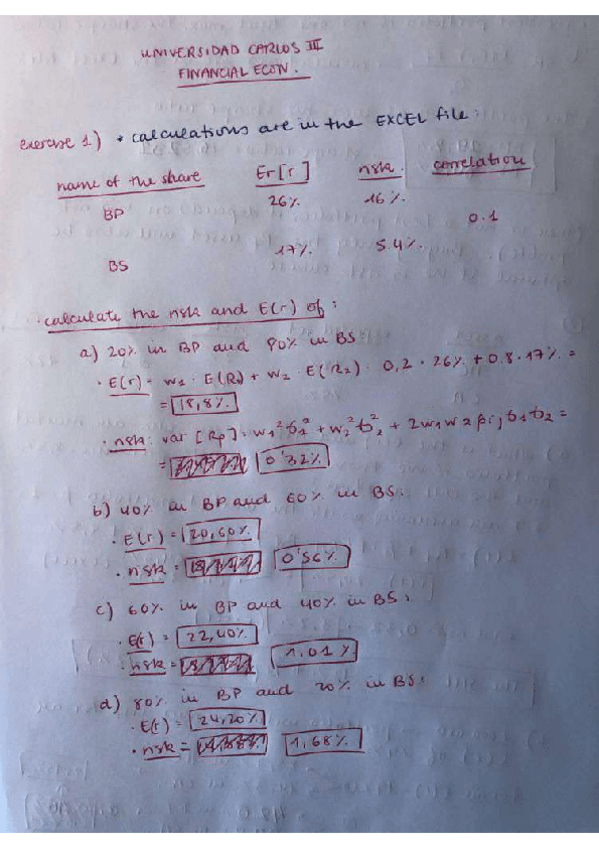 UNIVERSIDAD CARLOS III
FINANCIAL ECON.
exercise 1) * calculations are in the EXCEL file:
name of the share Er[r] risk. correlation
26% 16%.
BP 0.1
17% 5.4%.
BS
· calculate the risk and E(r) of:
a) 20% in BP and 80% in BS
· E(r) = w1 · E(R1) + w2 · E(R2) = 0,2 · 26% + 0.8 · 17% =
= 18,8%
· risk: var [Rp] = w1²σ1² + w2²σ2² + 2w1w2ρijσ1σ2 =
= 0'32%
b) 40% in BP and 60% in BS:
· E(r) = 20,60%
· risk = 0'56%
c) 60% in BP and 40% in BS:
· E(r) = 22,40%
· risk = 1,01%
d) 80% in BP and 20% in BS:
· E(r) = 24,20%
· risk = 1,68%